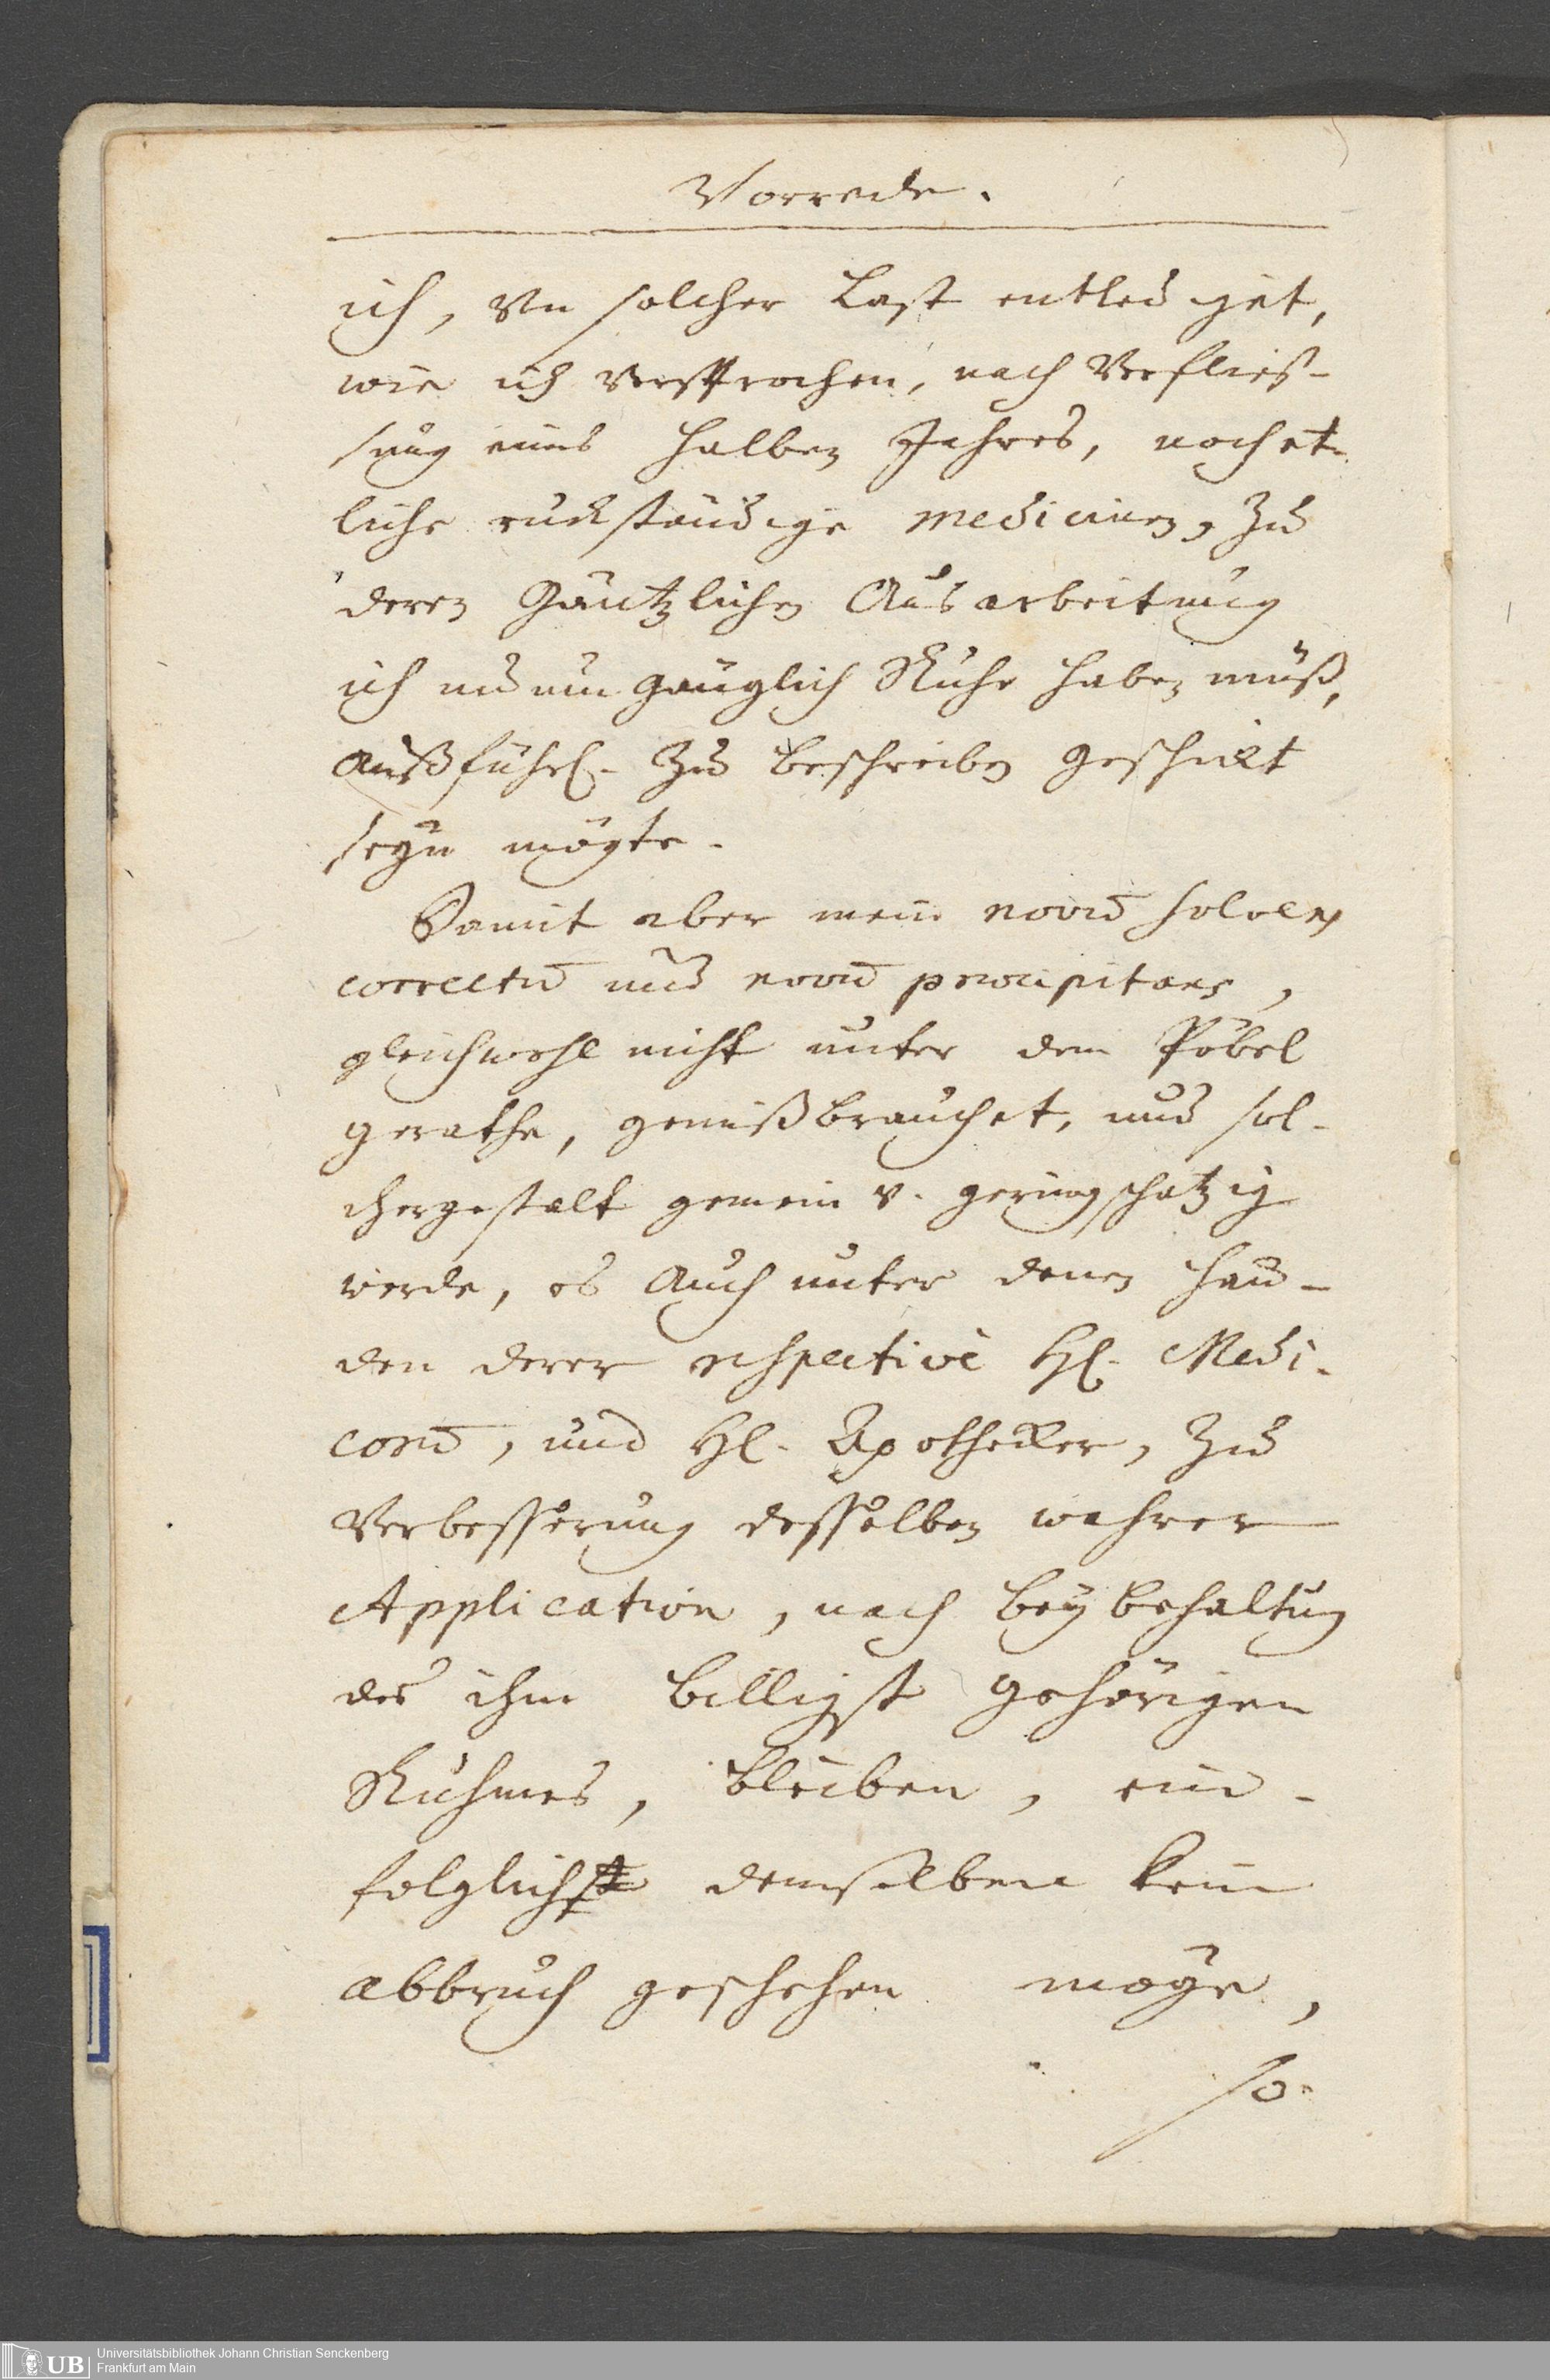 Vorrede.
ich, von solcher Last entlediget,
wie ich versprochen, nach Verflies-
sung eines halben Jahres, noch et-
liche ruckständige medicinen, zu
deren Gäntzlichen Ausarbeitung
ich umgänglich Ruhe haben muß,
außführl. zu beschreiben geschickt
seyn mögte.
Damit aber mein novū solvens
correctū und novū praecipitans,
gleichwohl nicht unter dem Pöbel
gerathe, gemißbrauchet, und sol-
chergestalt gemein v. geringschatzig
werde, es Auch unter denen Hän-
den derer respective Hl. Medi-
corū, und Hl. Apothecker, zu
Verbesserung desselben wahrer
Application, nach beybehaltung
des ihm billigst gehörigen
Ruhmes, bleiben,
folglich demselben kein
abbruch geschehen möge,
so
Universitätsbibliothek Johann Christian Senckenberg
Frankfurt am Main
UB